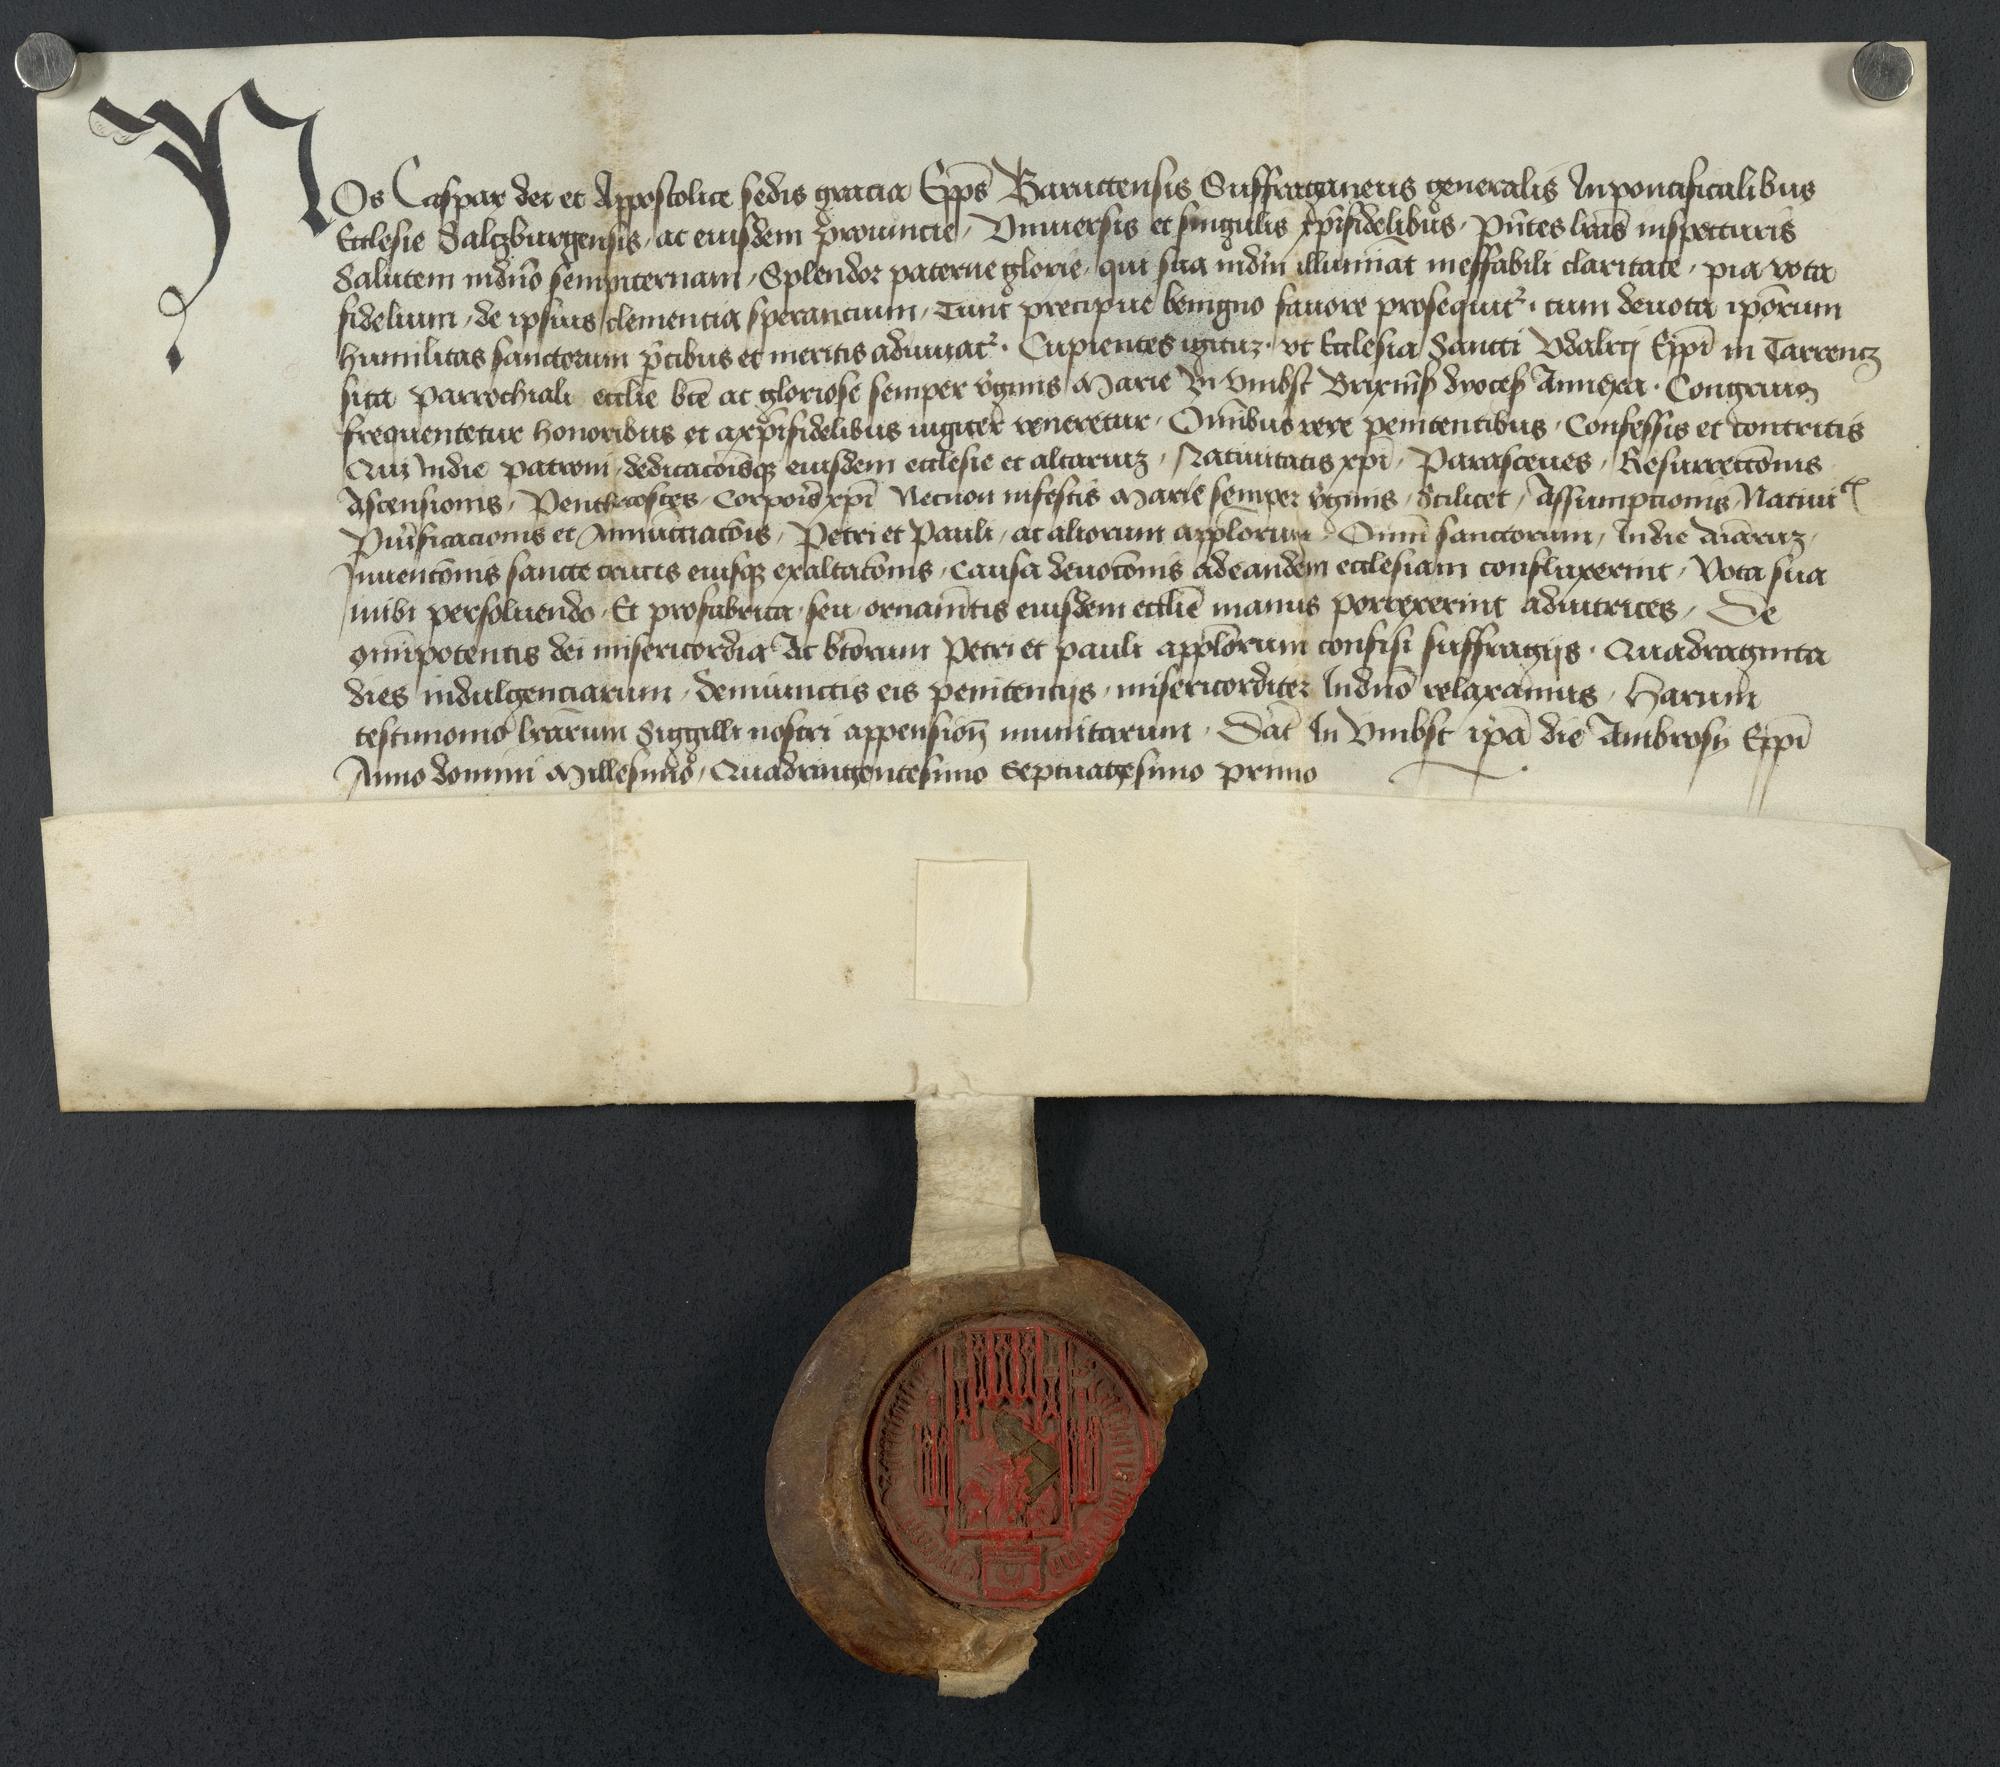 Nos Caspar dei et Appostolice sedis gracia Epp̄s Baruttensis Suffraganeus generalis In pontificalibus
Ecclesie Saltzburgensis, ac eiusdem prouincie, Vniuersis et singulis xp̄ifidelibus, Pn̄tes lr̄as inspecturis
Salutem in dn̄o sempiternam, Splendor paterne glorie, qui sua mdm̄ illuminat ineffabili claritate, pia vota
fidelium, de ipsius clementia sperancium, Tunc precipue benigno fauore prosequit᷑, cum deuota ip̄orum
humilitas sanctorum p̄cibus et meritis adiuuat᷑. Cupientes igitur, vt Ecclesia Sancti Vdalrici Epp̄i in Tarrentz
sita parrochiali ecclie bt̄e ac gloriose semper v̄ginis Marie In Vmbst Brixin̄ dyoces Annexa. Congruis
frequentetur honoribus et a xp̄ifidelibus iugiter veneretur, Om̄ibus vere penitentibus, Confessis et contritis
Qui In die patroni, dedicacōisqꝫ eiusdem ecclesie et altariuꝫ, Natiuitatis xp̄i, Parasceues, Resurrectōnis
Ascensionis, Penthecostes, Corporis xp̄i Necnon in festis Marie semper v̄ginis, Scilicet, Assumptionis Natiuit
Purificacionis et Annunctiacōis, Petri et Pauli, ac aliorum app̄lorum, Omn̄i sanctorum, In die aīaruꝫ,
Inuentōnis sancte crucis eiusqꝫ exaltatōnis, causa deuotōnis ad eandem ecclesiam confluxerint, Vota sua
inibi persoluendo, Et pro fabrica, seu ornamn̄tis eiusdem ecclīe manus porrexerint adiutrices, De
omn̄ipotentis dei misericordia Ac bt̄orum Petri et pauli app̄lorum confisi suffragijs. Quadraginta
dies indulgenciarum, de iniunctis eis penitentijs, misericorditer In dn̄o relaxamus, Harum
testimonio lr̄arum Siggilli nostri appension̄ munitarum, Dat̄ In Vmbst ip̄a die Ambrosij Epp̄i
Anno domini Millesimo, Quadringentesimo Septuagesimo primo